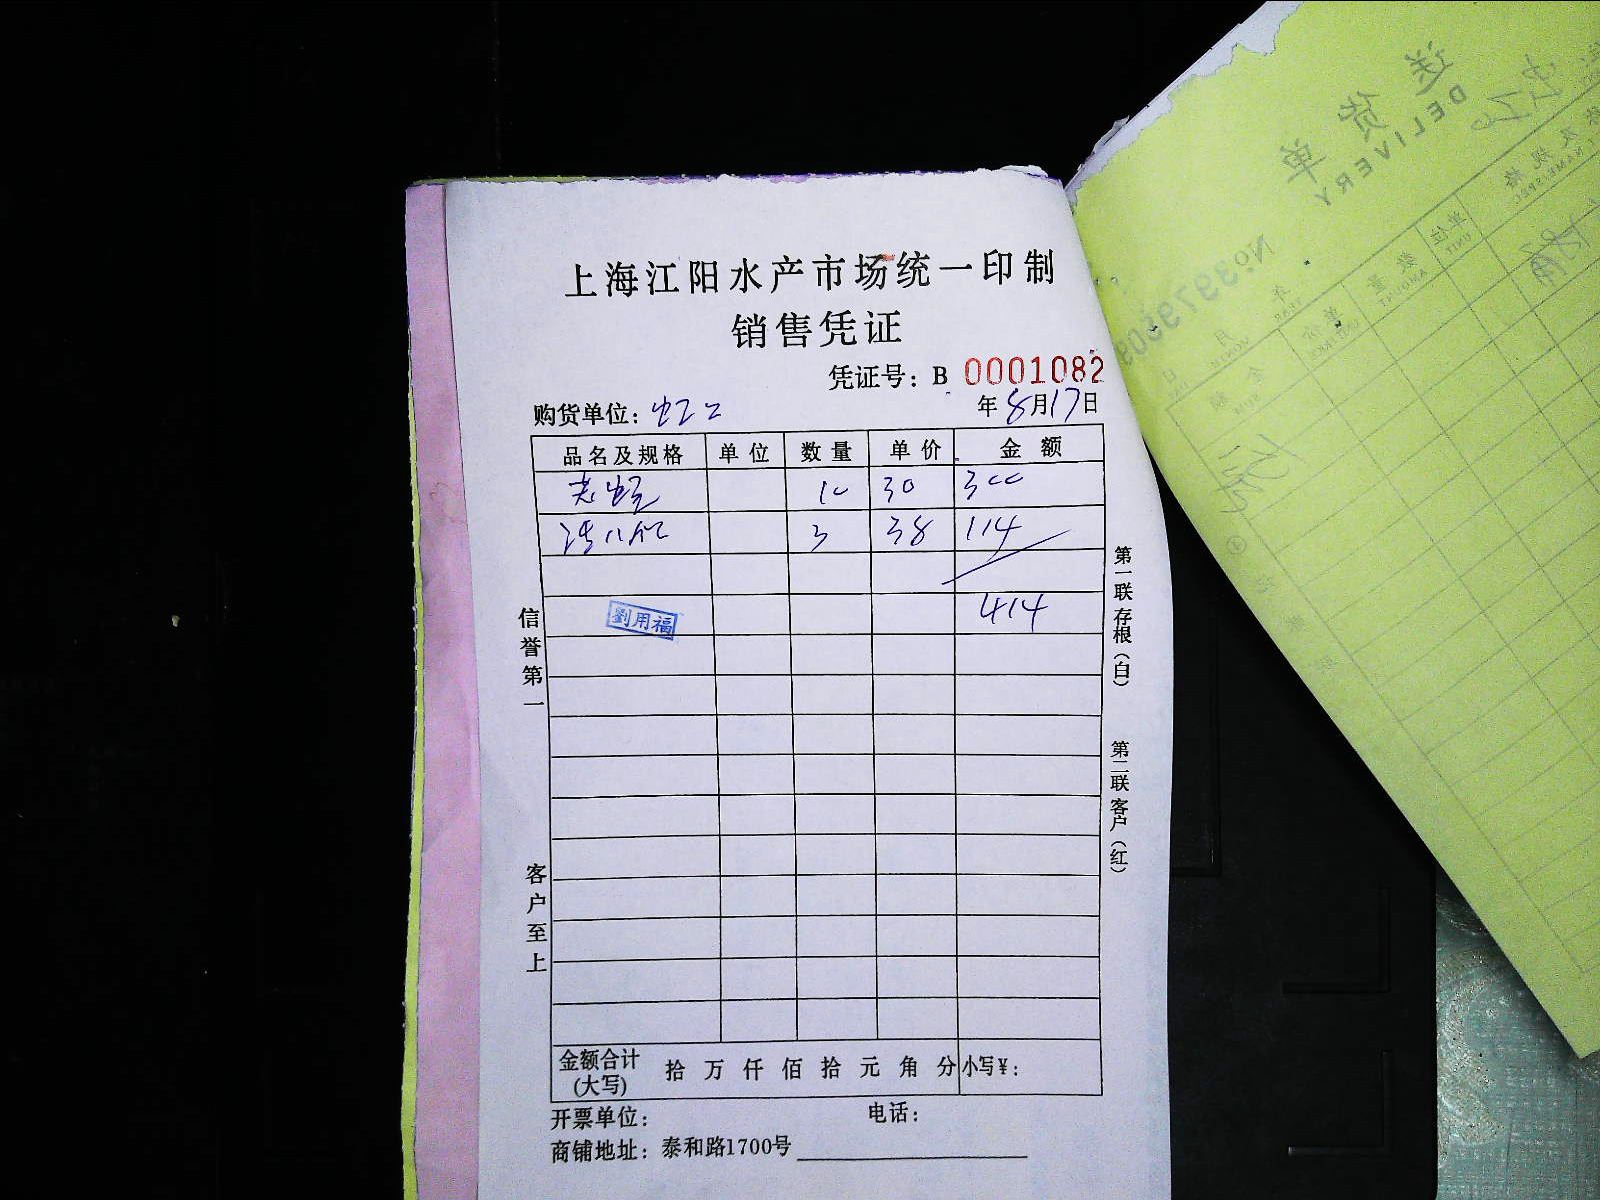 上海江阳水产市场统一印制
销售凭证
凭证号：B 0001082
购货单位： 年 8月17日
品名及规格 单位 数量 单价 金额
10 30 300
3 38 114
414
劉用福
信誉第一
客户至上
第一联存根（白）
第二联客户（红）
金额合计(大写) 拾 万 仟 佰 拾 元 角 分 小写¥：
开票单位： 电话：
商铺地址：泰和路1700号
送货单
DELIVERY